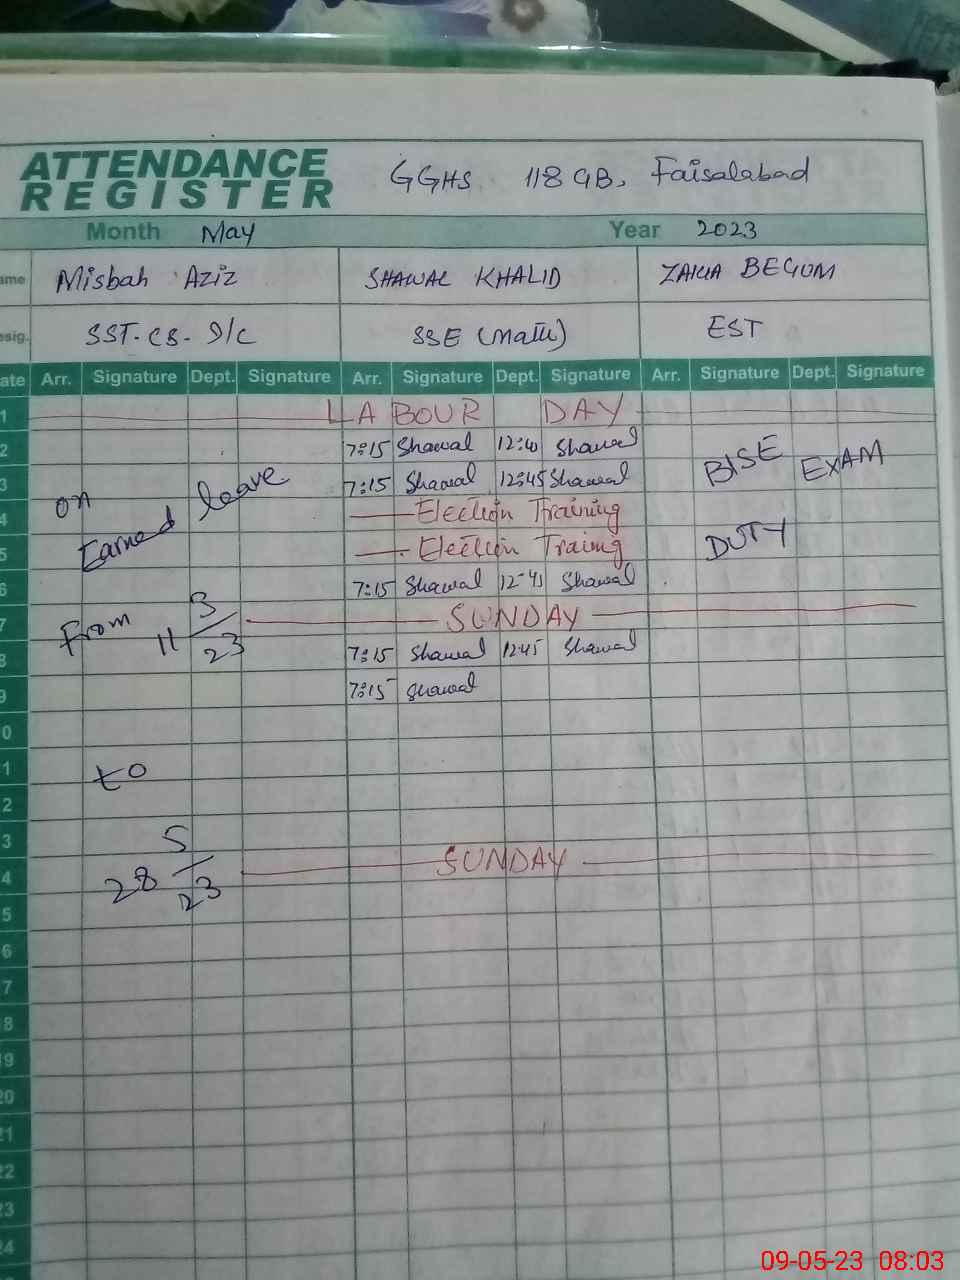 ATTENDANCE REGISTER GGHS 118 GB, Faisalabad
Month May Year 2023
ame Misbah Aziz SHAWAL KHALID ZAKIA BEGUM
esig. SST-CS- I/C SSE (Math) EST
ate Arr. Signature Dept. Signature Arr. Signature Dept. Signature Arr. Signature Dept. Signature
1 LABOUR DAY
2 7:15 Shawal 12:40 Shawal BISE EXAM
3 on leave 7:15 Shawal 12:45 Shawal
4 Earned Election Training
5 Election Traimg DUTY
6 7:15 Shawal 12-45 Shawal
7 From 11 3/23 SUNDAY
8 7:15 Shawal 1245 Shawal
9 7:15 Shawal
0
1 to
2
3
4 28 5/23 SUNDAY
5
6
7
8
19
20
21
22
23
24
09-05-23 08:03